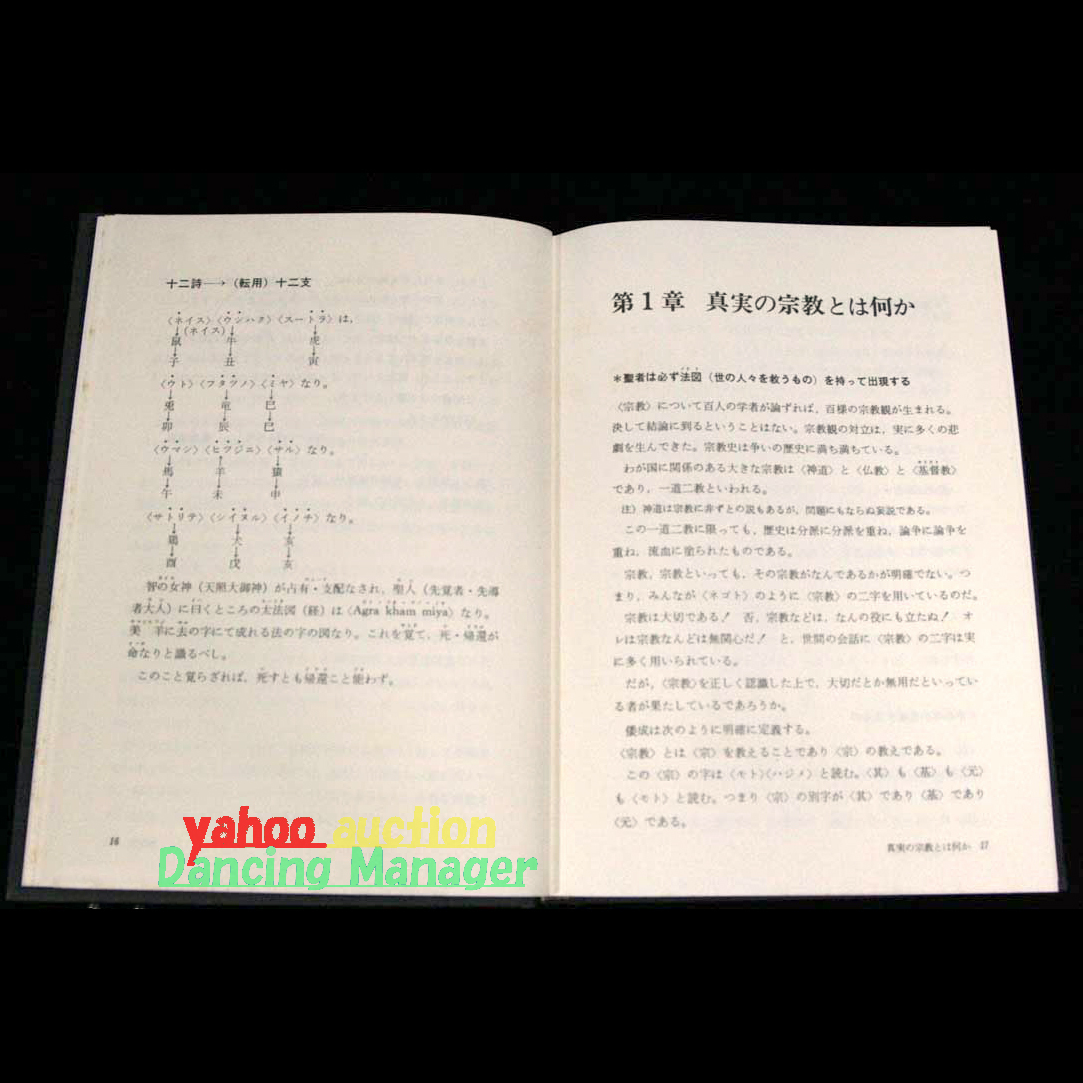 十二詩─→（転用）十二支
〈ネイス〉〈ウシハク〉〈スートラ〉は、
↓(ネイス)↓ ↓
鼠 牛 虎
↓ ↓ ↓
子 丑 寅
〈ウト〉〈フタツノ〉〈ミヤ〉なり。
↓ ↓ ↓
兎 竜 巳
↓ ↓ ↓
卯 辰 巳
〈ウマシ〉〈ヒツジニ〉〈サル〉なり。
↓ ↑ ↓
馬 羊 猿
↓ ↓ ↓
午 未 申
〈サトリテ〉〈シイヌル〉〈イノチ〉なり。
↓ ↓ ↓
鶏 犬 亥
↓ ↓ ↓
酉 戌 亥
智の女神（天照大御神）が占有・支配なされ、聖人（先覚者・先導
者大人）に曰くところの太法図（経）は〈Agra kham miya〉なり。
美 羊に去の字にて成れる法の字の図なり。これを覚て、死・帰還が
命なりと識るべし。
このこと覚らざれば、死すとも帰還こと能わず。
16
第1章 真実の宗教とは何か
＊聖者は必ず法図（世の人々を救うもの）を持って出現する
〈宗教〉について百人の学者が論ずれば、百様の宗教観が生まれる。
決して結論に到るということはない。宗教観の対立は、実に多くの悲
劇を生んできた。宗教史は争いの歴史に満ち満ちている。
わが国に関係のある大きな宗教は〈神道〉と〈仏教〉と〈基督教〉
であり、一道二教といわれる。
注）神道は宗教に非ずとの説もあるが、問題にもならぬ妄説である。
この一道二教に限っても、歴史は分派に分派を重ね、論争に論争を
重ね、流血に塗られたものである。
宗教、宗教といっても、その宗教がなんであるかが明確でない。つ
まり、みんなが〈ネゴト〉のように〈宗教〉の二字を用いているのだ。
宗教は大切である！ 否、宗教などは、なんの役にも立たぬ！ オ
レは宗教なんどは無関心だ！ と、世間の会話に〈宗教〉の二字は実
に多く用いられている。
だが、〈宗教〉を正しく認識した上で、大切だとか無用だといってい
る者が果たしているであろうか。
倭成は次のように明確に定義する。
〈宗教〉とは〈宗〉を教えることであり〈宗〉の教えである。
この〈宗〉の字は〈モト〉〈ハジメ〉と読む。〈其〉も〈基〉も〈元〉
も〈モト〉と読む。つまり〈宗〉の別字が〈其〉であり〈基〉であり
〈元〉である。
真実の宗教とは何か 17
yahoo auction
Dancing Manager